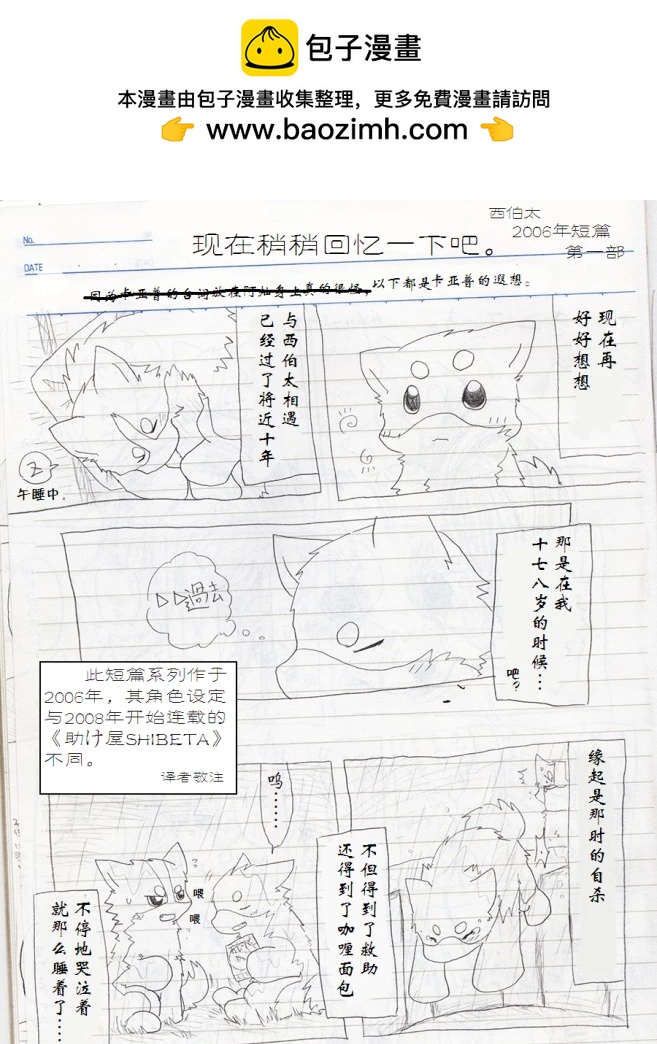 包子漫畫
本漫畫由包子漫畫收集整理，更多免費漫畫請訪問
www.baozimh.com
西伯太
2006年短篇
第一部
No.
现在稍稍回忆一下吧。
DATE
因为卡亚普的台词放在阿灿身上真的很怪，以下都是卡亚普的遐想。
现在再
好好想想
与西伯太相遇
已经过了将近十年
Z
午睡中。
那是在我
十七八岁的时候…
吧？
▷▷過去
此短篇系列作于
2006年，其角色设定
与2008年开始连载的
《助け屋SHIBETA》
不同。
译者敬注
缘起是那时的自杀
不但得到了救助
还得到了咖喱面包
呜……
喂
喂
不停地哭泣着
就那么睡着了……